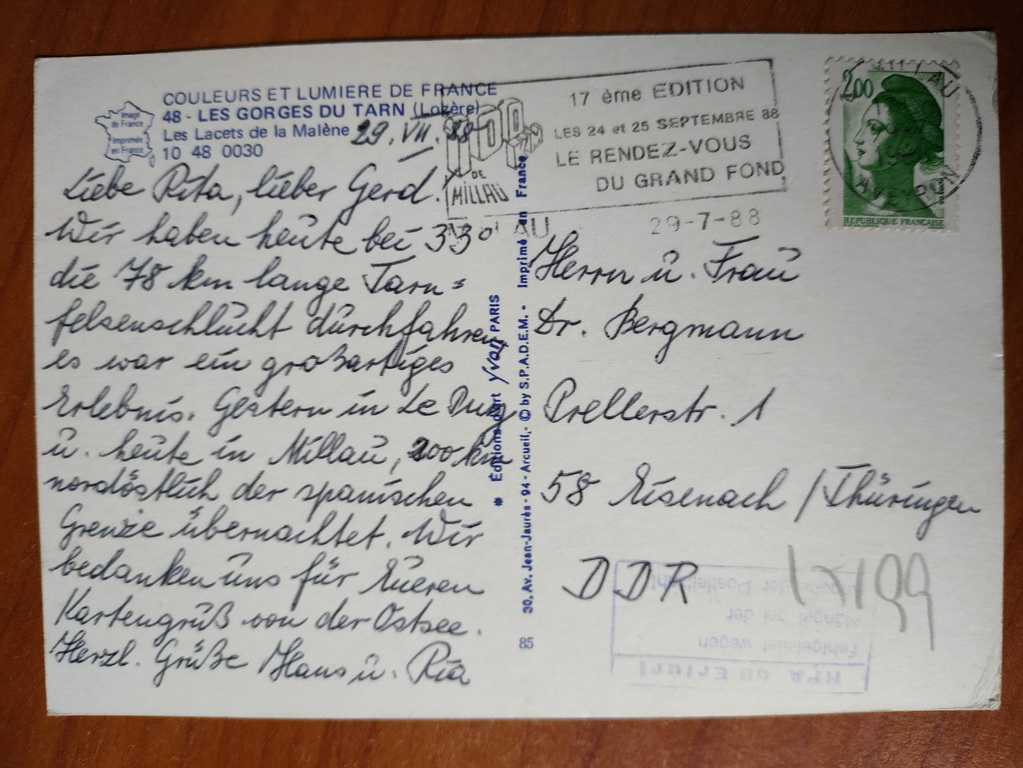 COULEURS ET LUMIERE DE FRANCE
48 - LES GORGES DU TARN (Lozère)
Les Lacets de la Malène
10 48 0030
Image
de France
Imprimée
en France
29. VII. 88
Liebe Rita, lieber Gerd.
Wir haben heute bei 33°
die 78 km lange Tarn=
felsenschlucht durchfahren
es war ein großartiges
Erlebnis. Gestern in Le Puy
u. heute in Millau, 200 km
nordöstlich der spanischen
Grenze übernachtet. Wir
bedanken uns für Eueren
Kartengruß von der Ostsee.
Herzl. Grüße Hans u. Ria
* Éditions d'art Yvon PARIS
30, Av. Jean-Jaurès - 94 - Arcueil, - © by S.P.A.D.E.M. - Imprimé en France
85
DE
MILLAU
17 ème EDITION
LES 24 et 25 SEPTEMBRE 88
LE RENDEZ-VOUS
DU GRAND FOND
29-7-88
2,00
REPUBLIQUE FRANÇAISE
AVEYRON
Herrn u. Frau
Dr. Bergmann
Prellerstr. 1
58 Eisenach / Thüringen
DDR
HPA 50 Erfurt
Fehlgeleitet wegen
Mängel bei der
Angabe der Postleitzahl